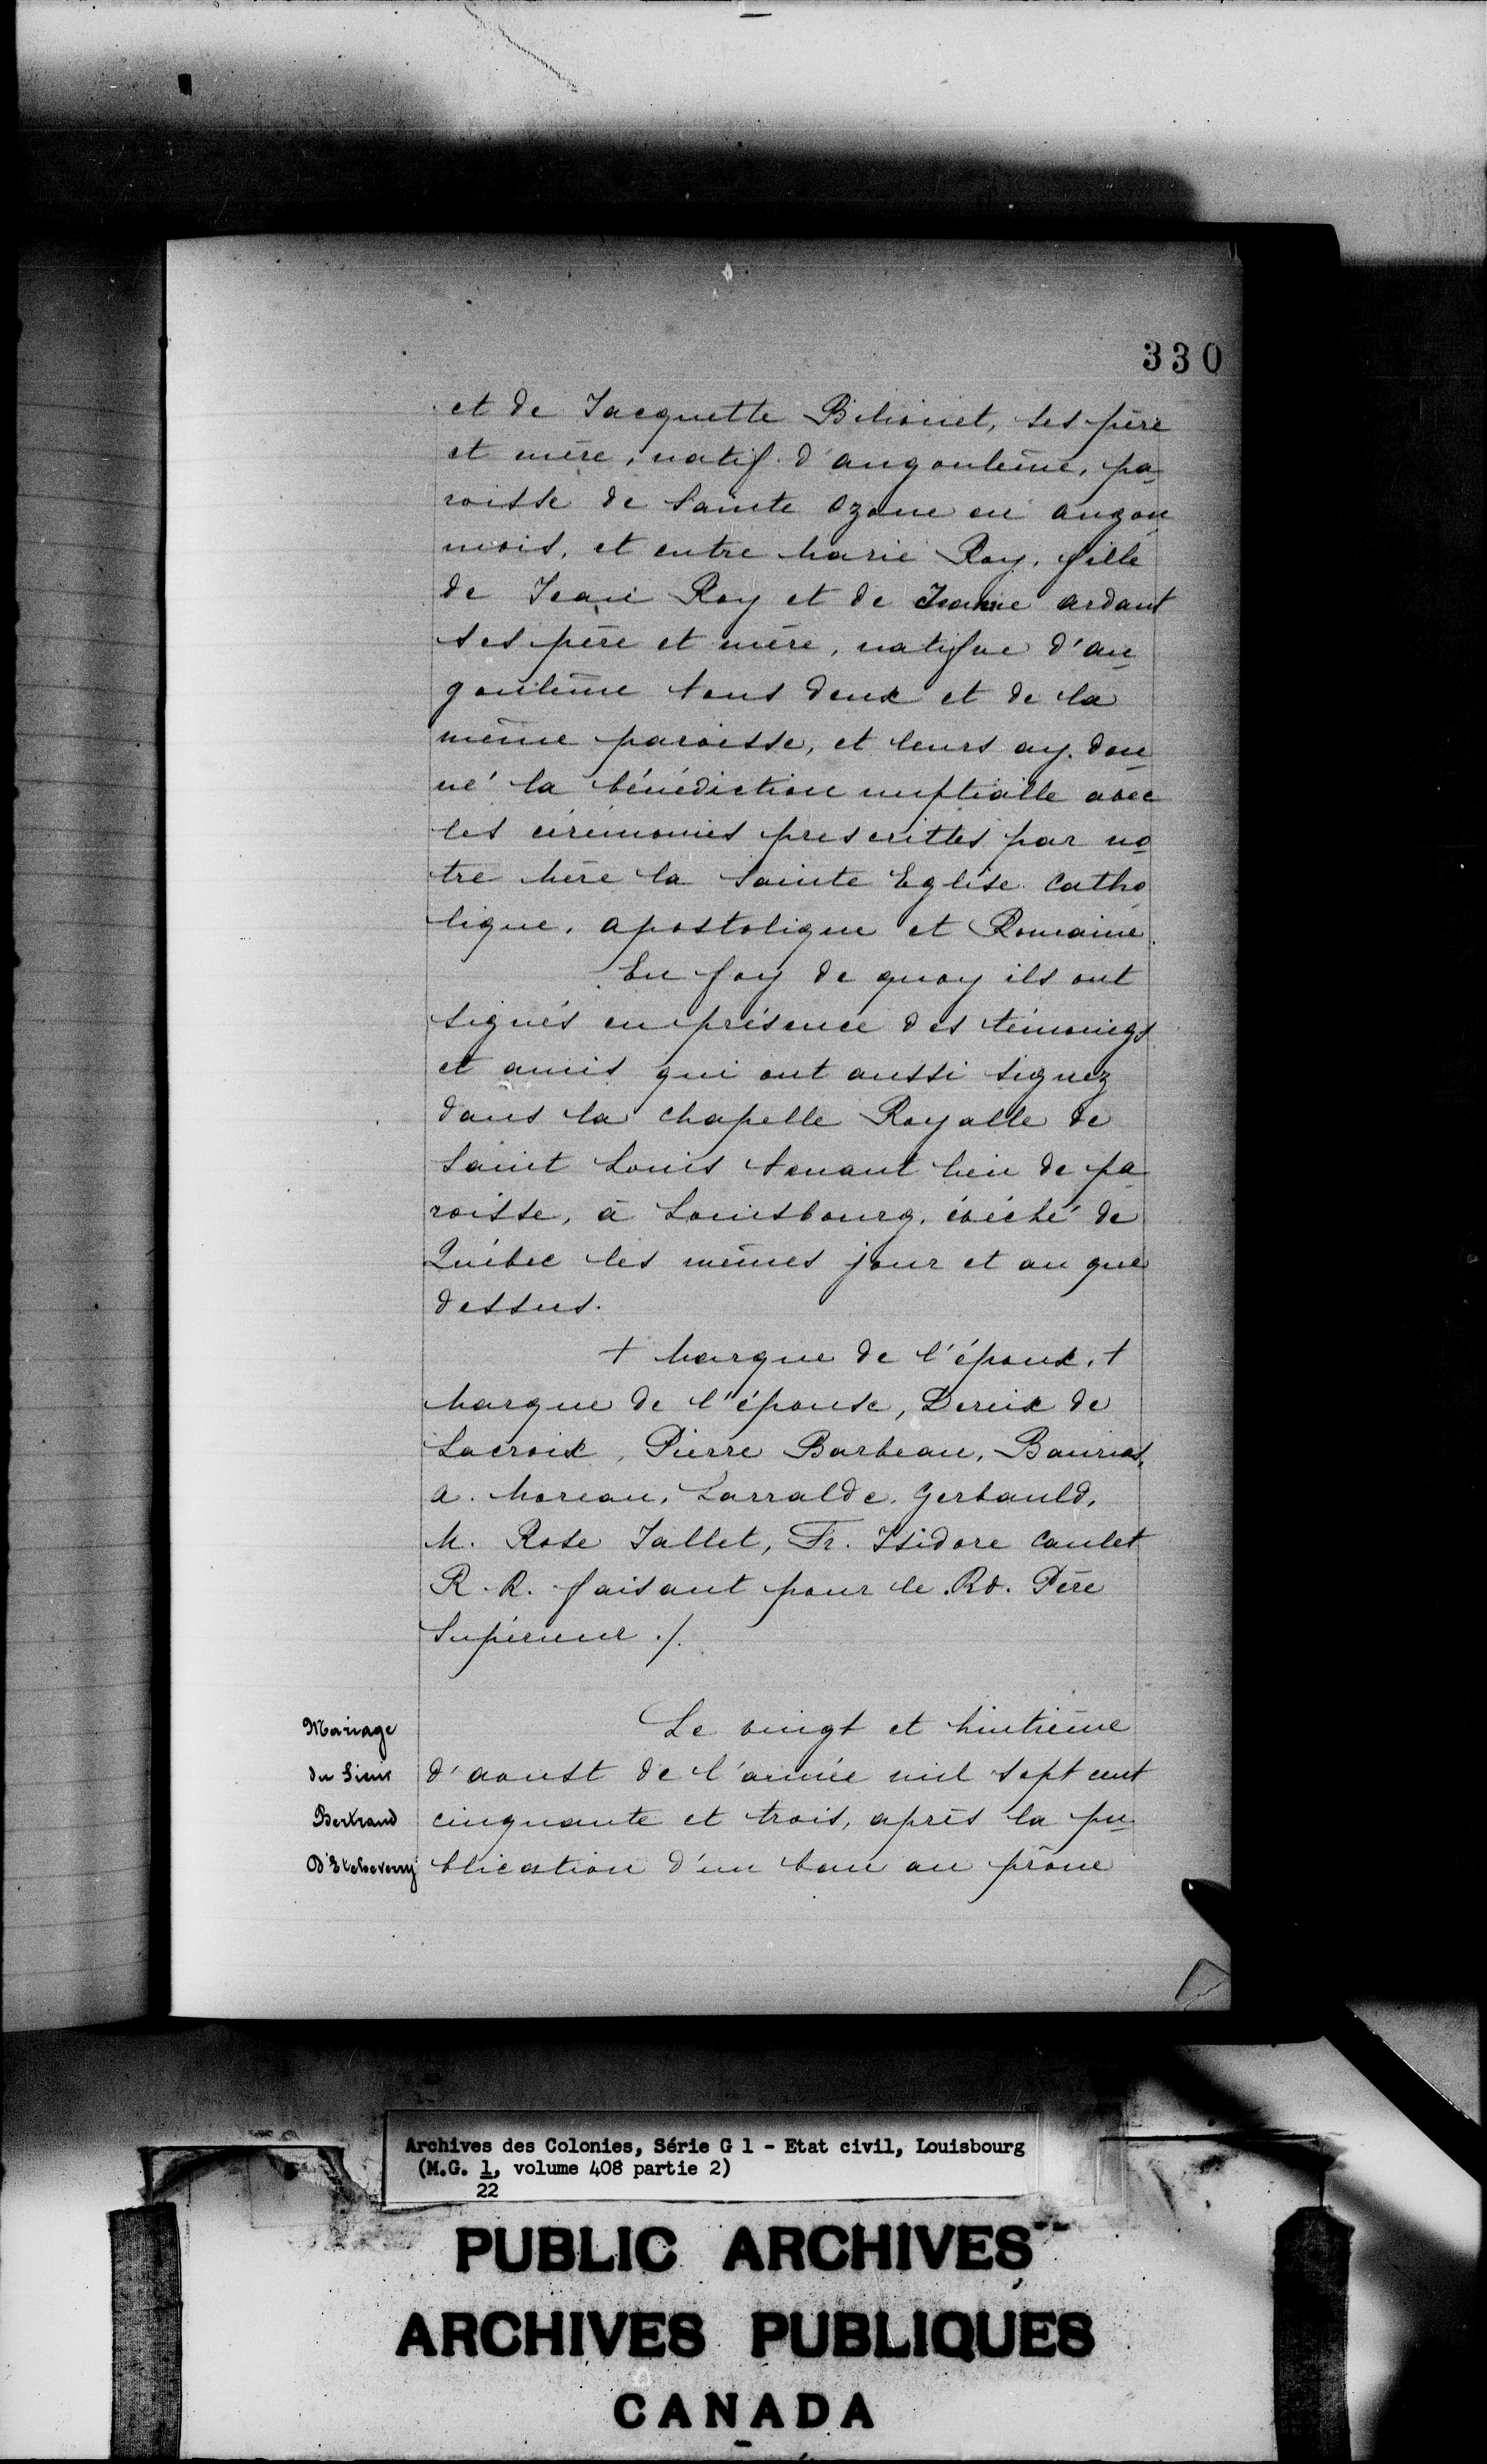 330
et de Jacquette Bihonet, ses père
et mère, natif d'angoulême, pa
roisse de Sainte Ozone en angou
mois, et entre Marie Roy, fille
de Jean Roy et de Jeanne ardant
ses père et mère, natifve d'an
goulême tous deux et de la
même paroisse, et leurs ay don
né la bénédiction nuptialle avec
les cérémonies prescrittes par no
tre Mère la Sainte Eglise Catho
lique, apostolique et Romaine.
En foy de quoy ils ont
signés en présence des témoings
et amis qui ont aussi signez
dans la chapelle Royalle de
Saint Louis tenant lieu de pa
roisse, à Louisbourg, évêché de
Québec les mêmes jour et an que
dessus.
+ Marque de l'époux, +
Marque de l'épouse, Dereix de
Lacroix, Pierre Barbeau,
a. Moreau, Larralde, Gerbauld,
M. Rose Jallet, Fr. Isidore Caulet
R. R. faisant pour le Rd. Père
Supérieur ./.
Mariage
du Sieur
Bertrand
D'Etcheverry
Le vingt et huitième
d'aoust de l'année mil sept cent
cinquante et trois, après la pu
blication d'un ban au prône
Archives des Colonies, Série G 1 - Etat civil, Louisbourg
(M.G. 1, volume 408 partie 2)
22
PUBLIC ARCHIVES
ARCHIVES PUBLIQUES
CANADA